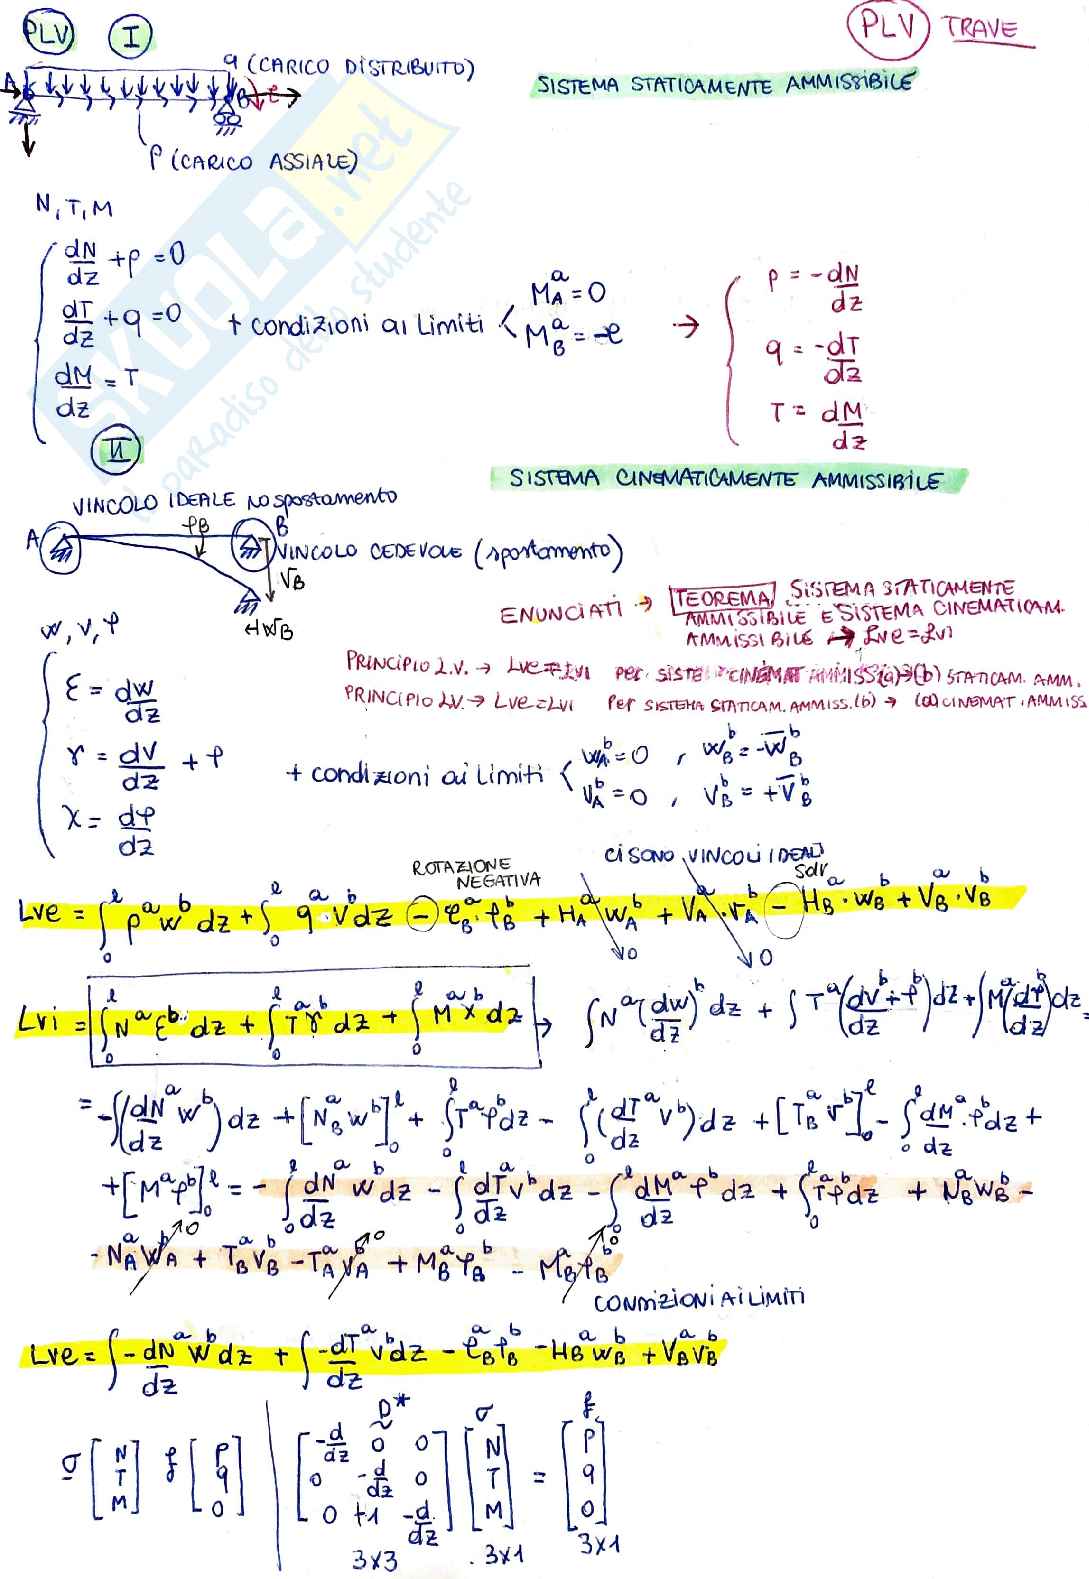 PLV I
PLV TRAVE
q (CARICO DISTRIBUITO)
SISTEMA STATICAMENTE AMMISSIBILE
A B
P (CARICO ASSIALE)
SKUOLA.net
il paradiso dello studente
N, T, M
dN/dz + P = 0
dT/dz + q = 0
dM/dz = T
+ condizioni ai limiti
M_A^a = 0
M_B^a = -ℓ
→
P = -dN/dz
q = -dT/dz
T = dM/dz
II
SISTEMA CINEMATICAMENTE AMMISSIBILE
VINCOLO IDEALE NO spostamento
A φB B
VINCOLO CEDEVOLE (spostamento)
VB
WB
ENUNCIATI → TEOREMA SISTEMA STATICAMENTE
AMMISSIBILE E SISTEMA CINEMATICAM.
AMMISSIBILE → Lve = Lvi
w, v, φ
PRINCIPIO L.V. → Lve = Lvi per SISTE CINEMAT AMMISS (a) → (b) STATICAM. AMM.
PRINCIPIO LV → Lve = Lvi Per SISTEMA STATICAM. AMMISS. (b) → (a) CINEMAT. AMMISS
ε = dw/dz
γ = dv/dz + φ
χ = dφ/dz
+ condizioni ai limiti
w_A^b = 0 , w_B^b = -w̄_B^b
v_A^b = 0 , v_B^b = +v̄_B^b
ROTAZIONE NEGATIVA
CI SONO VINCOLI IDEALI
Lve = ∫₀^ℓ P^a w^b dz + ∫₀^ℓ q^a · v^b dz − ℓ_B^a · φ_B^b + H_A^a w_A^b + V_A^a · v_A^b − H_B^a · w_B^b + V_B^a · v_B^b
0 0
Lvi = ∫₀^ℓ N^a ε^b dz + ∫₀^ℓ T^a γ^b dz + ∫₀^ℓ M^a χ^b dz → ∫N^a (dw/dz)^b dz + ∫T^a (dv^b/dz + φ^b) dz + ∫M^a (dφ^b/dz) dz =
= -∫(dN^a/dz w^b) dz + [N_B^a w^b]₀^ℓ + ∫₀^ℓ T^a φ^b dz - ∫₀^ℓ (dT^a/dz v^b) dz + [T_B^a v^b]₀^ℓ - ∫₀^ℓ dM^a/dz · φ^b dz +
+ [M^a φ^b]₀^ℓ = -∫₀^ℓ dN^a/dz w^b dz - ∫₀^ℓ dT^a/dz v^b dz - ∫₀^ℓ dM^a/dz φ^b dz + ∫₀^ℓ T^a φ^b dz + N_B^a w_B^b -
- N_A^a w_A^b + T_B^a v_B^b - T_A^a v_A^b + M_B^a φ_B^b - M_B^a φ_B^b
0 0 0
CONDIZIONI AI LIMITI
Lve = ∫ -dN^a/dz w^b dz + ∫ -dT^a/dz v^b dz - ℓ_B^a φ_B^b - H_B^a w_B^b + V_B^a v_B^b
D* σ f
σ [N T M] f [P q 0]
[-d/dz 0 0
0 -d/dz 0
0 +1 -d/dz] [N T M] = [P q 0]
3x3 3x1 3x1